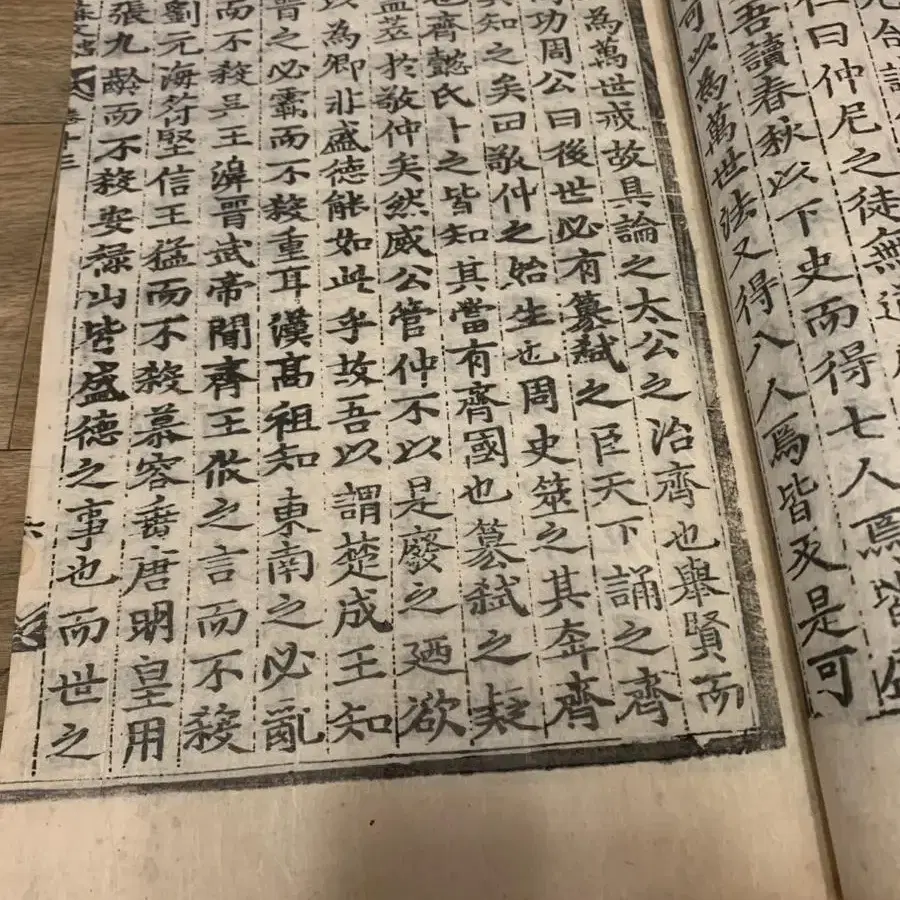 仁曰仲尼之徒無道
吾讀春秋以下史而得七人焉皆
可以為萬世法又得八人焉皆反是可
為萬世戒故具論之太公之治齊也舉賢而
功周公曰後世必有簒弑之臣天下誦之齊
其知之矣田敬仲之始生也周史筮之其奔齊
也齊懿氏卜之皆知其當有齊國也簒弑之疑
盖萃於敬仲矣然威公管仲不以是廢之廼欲
以為卿非盛德能如此乎故吾以謂楚成王知
晉之必霸而不殺重耳漢高祖知東南之必亂
而不殺呉王濞晉武帝聞齊王攸之言而不殺
劉元海苻堅信王猛而不殺慕容垂唐明皇用
張九齡而不殺安祿山皆盛德之事也而世之
卷十三
六